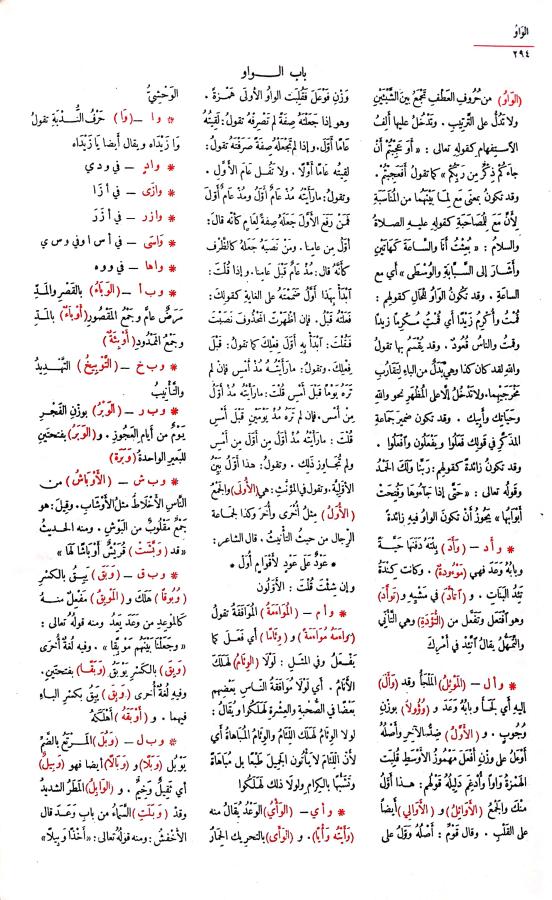 الوَاوُ
٢٩٤
باب الـــواو
(الوَاوُ) من حُرُوفِ العَطْفِ تَجْمَعُ بينَ الشَّيْئَيْنِ
ولا تَدُلُّ على التَّرْتِيبِ . وتَدْخُلُ عليها أَلِفُ
الاسْتِفهامِ كقولِهِ تعالى : « أَوَ عَجِبْتُمْ أَنْ
جَاءَكُمْ ذِكْرٌ مِن رَبِّكُمْ » كما تقولُ أَفَعَجِبْتُمْ .
وقد تكونُ بمعنَى مَعَ لِمَا بَيْنَهُما من المُنَاسَبَةِ
لِأَنَّ مَعَ لِلْمُصَاحَبَةِ كقولِهِ عليهِ الصلاةُ
والسلامُ : « بُعِثْتُ أَنَا والسَّاعَةَ كَهَاتَيْنِ
وأَشَارَ إلى السَّبَّابَةِ والوُسْطَى » أي مع
الساعةِ . وقد تكونُ الوَاوُ للحَالِ كقولِهِم :
قُمْتُ وأُكْرِمُ زَيْدًا أي قُمْتُ مُكْرِمًا زيدًا
وقمتُ والناسُ قُعُودٌ . وقد يُقْسَمُ بها تقولُ
واللهِ لقد كان كذا وهي بَدَلٌ من الباءِ لِتَقَارُبِ
مَخْرَجَيْهِما. ولا تَدْخُلُ إلا على المُظْهَرِ نحوُ واللهِ
وحَيَاتِكَ وأبيكَ . وقد تكون ضميرَ جماعةِ
المذكَّرِ في قولِكَ فَعَلُوا ويَفْعَلُونَ وافْعَلُوا .
وقد تكونُ زائدةً كقولِهِم : رَبَّنا ولَكَ الحَمْدُ
وقولُه تعالى : « حَتَّى إِذَا جَاءُوهَا وَفُتِحَتْ
أَبْوَابُها » يَجُوزُ أنْ تكونَ الواوُ فيه زائدةً
* و أ د – (وَأَدَ) بِنْتَهُ دَفَنَها حَيَّةً
وبابُهُ وَعَدَ فهي (مَوْءُودَةٌ) . وكانت كِنْدَةُ
تَئِدُ البَنَاتِ . و (اتَّأَدَ) في مَشْيِهِ و (تَوَأَّدَ)
وهو افْتَعَلَ وتَفَعَّلَ من (التُّؤَدَةِ) وهي التَّأَنِّي
والتَّمَهُّلُ يقالُ اتَّئِدْ في أَمْرِكَ
* و أ ل – (المَوْئِلُ) المَلْجَأُ وقد (وَأَلَ)
إليه أي لَجَأَ وبابُهُ وَعَدَ و (وُؤُولًا) بوزنِ
وُجُوبٍ . و (الأَوَّلُ) ضِدُّ الآخِرِ وأَصْلُهُ
أَوْأَلُ على وَزْنِ أَفْعَلَ مَهْمُوزُ الأَوْسَطِ قُلِبَتِ
الهَمْزَةُ واوًا وأُدْغِمَ دَلِيلُهُ قَوْلُهُم : هذا أَوَّلُ
منكَ والجَمْعُ (الأَوَائِلُ) و (الأَوَالِي) أيضًا
على القَلْبِ . وقال قَوْمٌ : أَصْلُهُ وَوَّلُ على
وَزْنِ فَوْعَلٍ فَقُلِبَتِ الواوُ الأُولى هَمْزَةً .
وهو إذا جَعَلْتَهُ صِفَةً لم تَصْرِفْهُ تقولُ: لَقِيتُهُ
عَامًا أَوَّلَ. وإذا لم تَجْعَلْهُ صِفَةً صَرَفْتَهُ تقولُ:
لَقِيتُهُ عامًا أَوَّلًا . ولا تَقُلْ عامَ الأَوَّلِ .
وتقولُ: ما رَأَيْتُه مُذْ عامٌ أَوَّلُ ومُذْ عامٍ أَوَّلَ
فَمَنْ رَفَعَ الأَوَّلَ جَعَلَهُ صِفَةً لِعَامٍ كأنه قالَ:
أَوَّلُ من عامِنا . ومَنْ نَصَبَهُ جَعَلَهُ كالظَّرْفِ
كأَنَّه قالَ: مُذْ عامٌ قَبْلَ عامِنا. وإذا قُلْتَ:
ابْدَأْ بهذا أَوَّلُ ضَمَمْتَهُ على الغايةِ كقولِكَ:
فَعَلْتُهُ قَبْلُ . فإن أَظْهَرْتَ المَحْذُوفَ نَصَبْتَ
فَقُلْتَ: ابْدَأْ بِهِ أَوَّلَ فِعْلِكَ كما تقولُ: قَبْلَ
فِعْلِكَ . وتقولُ: ما رَأَيْتُهُ مُذْ أَمْسِ فإن لم
تَرَهُ يومًا قَبْلَ أَمْسِ قُلْتَ: ما رَأَيْتُهُ مُذْ أَوَّلَ
مِنْ أَمْسِ. فإن لم تَرَهُ مُذْ يَوْمَيْنِ قَبْلَ أَمْسِ
قُلْتَ : ما رَأَيْتُهُ مُذْ أَوَّلَ من أَوَّلَ مِن أَمْسِ
ولم تُجَاوِزْ ذلكَ . وتقولُ: هذا أَوَّلُ بَيِّنُ
الأَوَّلِيَّةِ. وتقول في المؤنَّثِ: هي (الأُولَى) والجَمْعُ
(الأُوَلُ) مثلُ أُخْرَى وأُخَرَ وكذا لجماعةِ
الرِّجالِ من حيثُ التأنيثُ . قال الشاعرُ :
* عَوْدٌ على عَوْدٍ لأقوامٍ أُوَلْ *
وإن شِئتَ قُلْتَ : الأَوَّلُونَ
* و أ م – (المُوَاءَمَةُ) المُوَافَقَةُ تقولُ
(وَاءَمَهُ مُوَاءَمَةً) و (وِئَامًا) أي فَعَلَ كما
يَفْعَلُ وفي المَثَلِ : لَوْلَا (الوِئَامُ) لَهَلَكَ
الأَنَامُ . أي لَوْلَا مُوَافَقَةُ الناسِ بعضِهِم
بعضًا في الصُّحْبَةِ والعِشْرَةِ لَهَلَكُوا ويُقَالُ :
لولا الوِئَامُ لَهَلَكَ اللِّئَامُ والوِئَامُ المُبَاهَاةُ أي
لأنَّ اللِّئَامَ لا يَأْتُونَ الجَمِيلَ طَبْعًا بل مُبَاهَاةً
وتَشَبُّهًا بالكِرَامِ ولولا ذلك لَهَلَكُوا
* و أ ي – (الوَأْيُ) الوَعْدُ يُقَالُ منه
(وَأَيْتُهُ وَأْيًا) . و (الوَأَى) بالتحريك الحِمَارُ
الوَحْشِيُّ
* و ا – (وَا) حَرْفُ النُّدْبَةِ تقولُ
وَا زَيْدَاه ويقال أيضا يا زَيْدَاه
* وادٍ – في و د ي
* وَازَى – في أ ز ا
* وازر – في أ ز ر
* واسَى – في أ س ا وفي و س ي
* واها – في و و ه
* و ب أ – (الوَبَأُ) بالقَصْرِ والمَدِّ
مَرَضٌ عامٌّ وجَمْعُ المَقْصُورِ (أَوْبَاءٌ) بالمَدِّ
وجَمْعُ المَمْدُودِ (أَوْبِئَةٌ)
* و ب خ – (التَّوْبِيخُ) التَّهْدِيدُ
والتَّأْنِيبُ
* و ب ر – (الوَبْرُ) بوزنِ الفَجْرِ
يَوْمٌ من أَيَّامِ العَجُوزِ . و (الوَبَرُ) بفتحتين
للبعيرِ الواحدةُ (وَبَرَةٌ)
* و ب ش – (الأَوْبَاشُ) من
الناسِ الأَخْلَاطُ مثلُ الأَوْشَابِ. وقيلَ: هو
جَمْعٌ مَقْلُوبٌ من البَوْشِ . ومنه الحديثُ
« قد (وَبَّشَتْ) قُرَيْشٌ أَوْبَاشًا لها »
* و ب ق – (وَبَقَ) يَبِقُ بالكَسْرِ
(وُبُوقًا) هَلَكَ و (المَوْبِقُ) مَفْعِلٌ منـه
كالمَوْعِدِ من وَعَدَ يَعِدُ ومنه قولُه تعالى :
« وجَعَلْنَا بَيْنَهُم مَوْبِقًا » . وفيه لُغَةٌ أُخْرَى
(وَبِقَ) بالكَسْرِ يَوْبَقُ (وَبَقًا) بفتحتين .
وفيه لُغَةٌ أُخْرَى (وَبِقَ) يَبِقُ بكسرِ الباءِ
فيهما . و (أَوْبَقَهُ) أَهْلَكَهُ
* و ب ل – (وَبُلَ) المَرْتَعُ بالضَّمِّ
يَوْبُلُ (وَبْلًا) و (وَبَالًا) أيضا فهو (وَبِيلٌ)
أي ثَقِيلٌ وَخِيمٌ . و (الوَابِلُ) المَطَرُ الشديدُ
وقدْ (وَبَلَتِ) السَّماءُ من بابِ وَعَدَ قال
الأخْفَشُ : ومنه قولُهُ تعالى: « أَخْذًا وَبِيلًا »